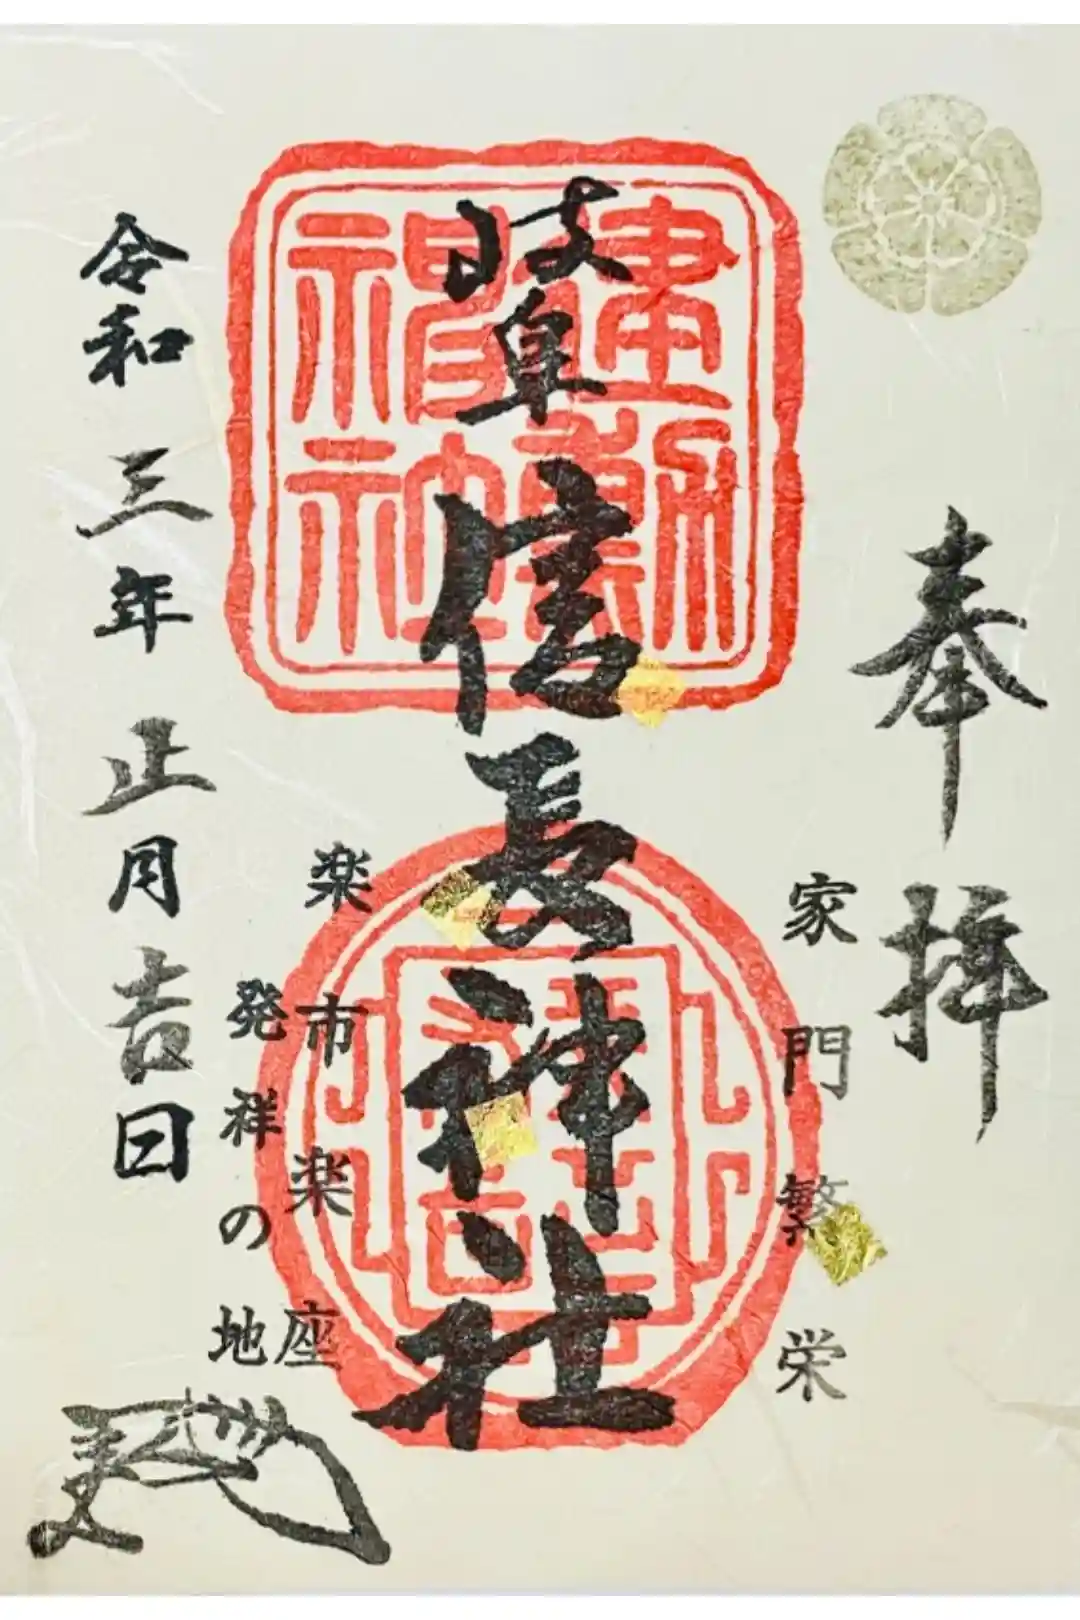 奉拝
家門繁栄
岐阜信長神社
建勲神社
楽市楽座
発祥の地
令和三年正月吉日